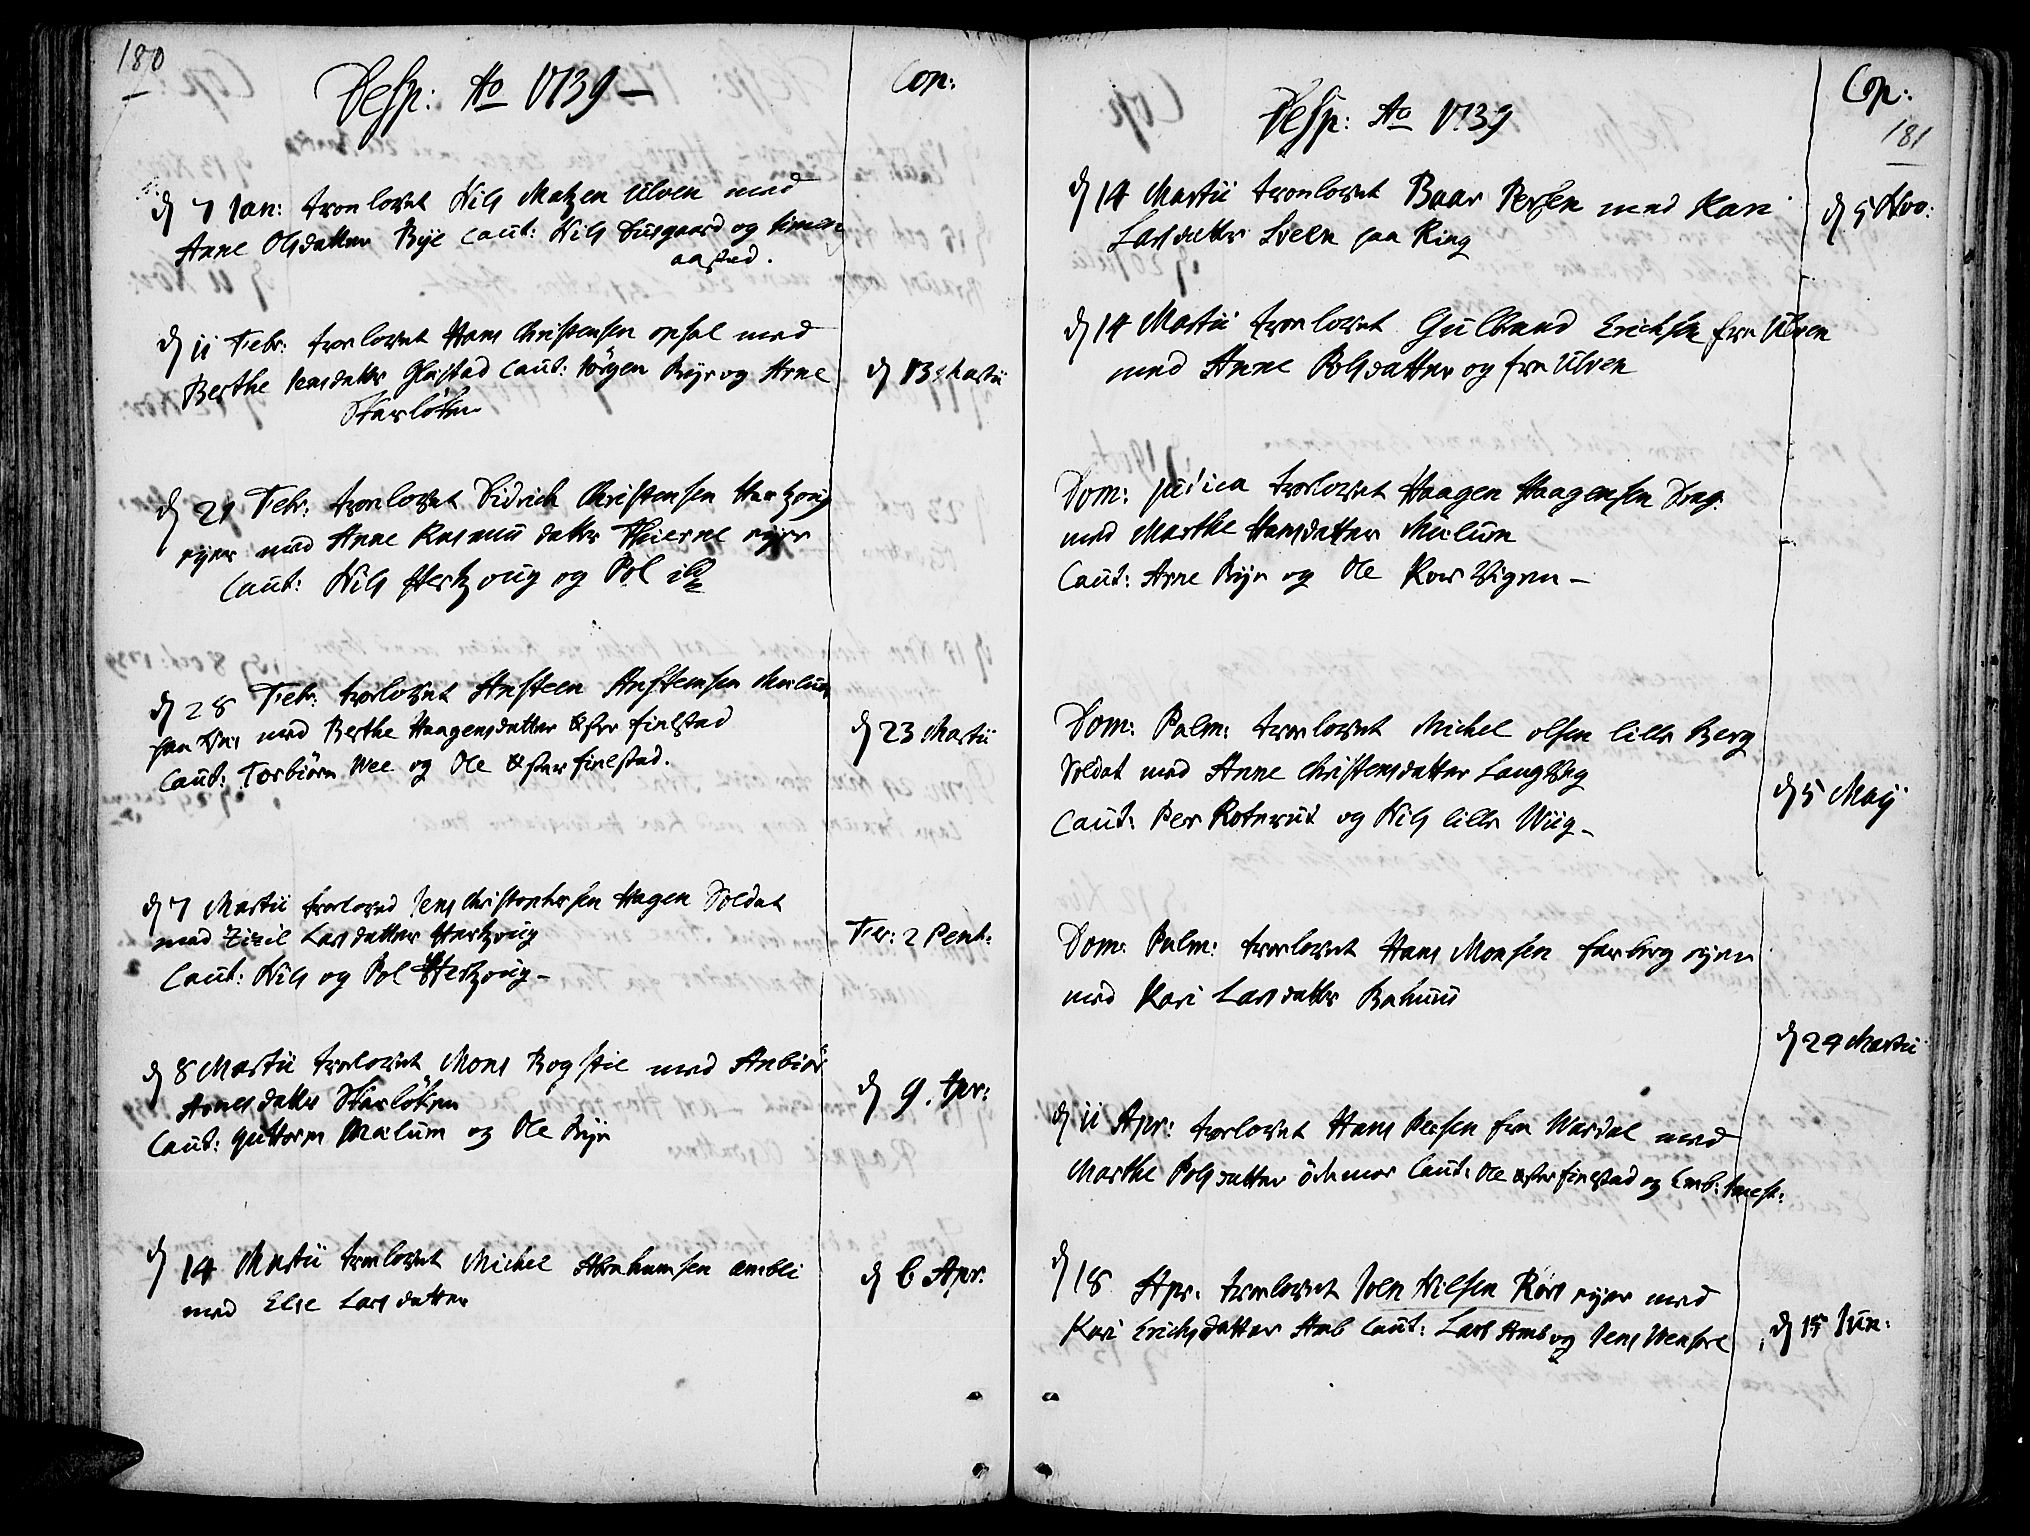 180
Desp: Ao 1739 —
Cop:
d 7 Jan: trovlovet Nils Matzen Ulven med
Anne Olsdatter Bye Caut: Nils Dusgaard og Simen
aastad.
d 11 Febr: trovlovet Hans Christensen opsal med
Berthe Jensdatter Glæstad Caut: Jörgen Bye og Arne
Skarlöken
d 13 Martii
d 21 Febr: trovlovet Didrich Christensen Hertzoug
ryer med Anne Rasmus datter Thierne ryer
Caut: Nils Hertzoug og Pol ibd
d 28 Febr: trovlovet Ansteen Anstensen Mælum
paa Næs med Berthe Haagensdatter Øster finstad
Caut: Torbiörn Wee og Ole Øster finstad.
d 23 Martii
d 7 Martii trovloved Jens Christophersen Hagen Soldat
med Zizil Lars datter Hertzoug
Caut: Nils og Pol Hertzoug —
Fer: 2 Pent:
d 8 Martii trovlovet Mons Bogstie med Anbiör
Arnes datter Skarlöken
Caut: Guttorm Mælum og Ole Bye
d 9. Apr:
d 14 Martii trovlovet Michel Abrahamsen æmbli
med Else Lars datter
d 6 Apr.
Desp: Ao 1739
Cop:
181
d 14 Martii trovlovet Baar Persen med Kari
Larsdatter Sveen paa Ring
d 5 Nov:
d 14 Martii trovlovet Gulbrand Erichsen fra Ulven
med Anne Polsdatter og fra Ulven
Dom: Judica trovlovet Haagen Haagensen Drag:
med Marthe Hansdatter Mælum
Caut: Arne Bye og Ole Kors Vigen —
Dom: Palm: trovlovet Michel olsen lille Berg
Soldat med Anne Christensdatter Langweg
Caut: Per Roterut og Nils lille Wiig —
d 5 Maij
Dom: Palm: trovlovet Hans Monsen farberg ryer
med Kari Lars datter Bahuus
d 24 Martii
d 11 Apr: trovlovet Hans Persen fra Wardal med
Marthe Polsdatter öchmor Caut: Ole Øster finstad og Emb:
d 18 Apr: trovlovet Joen Nilsen Rörs ryer med
Kari Erichsdatter Amb Caut: Lars Amb og Jens Wensvre
d 15 Jun: